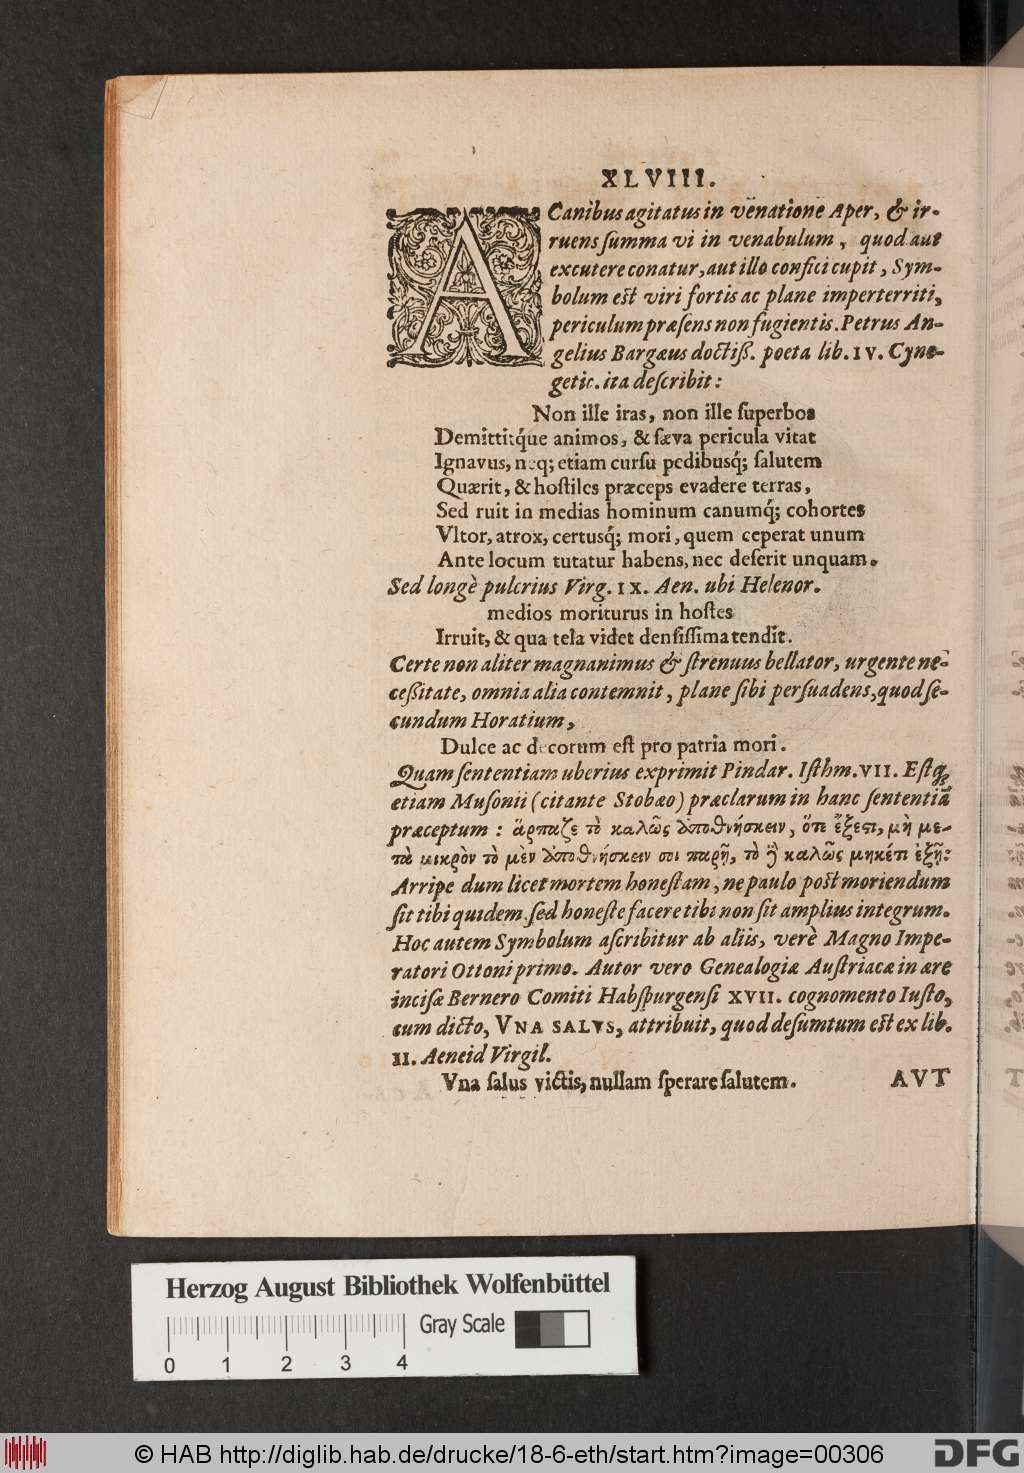 XLVIII.
A Canibus agitatus in venatione Aper, & ir-
ruens ſumma vi in venabulum, quod aut
excutere conatur, aut illo confici cupit, Sym-
bolum eſt viri fortis ac plane imperterriti,
periculum præſens non fugientis. Petrus An-
gelius Bargæus doctiß. poeta lib. IV. Cyne-
getic. ita deſcribit:
Non ille iras, non ille ſuperbos
Demittitq́ue animos, & ſæva pericula vitat
Ignavus, neq; etiam curſu pedibusq́; ſalutem
Quærit, & hoſtiles præceps evadere terras,
Sed ruit in medias hominum canumq́; cohortes
Vltor, atrox, certusq́; mori, quem ceperat unum
Ante locum tutatur habens, nec deſerit unquam.
Sed longè pulcrius Virg. IX. Aen. ubi Helenor.
medios moriturus in hoſtes
Irruit, & qua tela videt denſiſſima tendit.
Certe non aliter magnanimus & ſtrenuus bellator, urgente ne-
ceßitate, omnia alia contemnit, plane ſibi perſuadens, quod ſe-
cundum Horatium,
Dulce ac decorum eſt pro patria mori.
Quam ſententiam uberius exprimit Pindar. Iſthm. VII. Eſtq́;
etiam Muſonii (citante Stobæo) præclarum in hanc ſententiã
præceptum: ἅρπαζε τὸ καλῶς ἀποθνήσκειν, ὅτε ἔξεστι, μὴ με-
τὰ μικρὸν τὸ μὲν ἀποθνήσκειν σοι παρῇ, τὸ δὲ καλῶς μηκέτι ἐξῇ:
Arripe dum licet mortem honeſtam, ne paulo poſt moriendum
ſit tibi quidem, ſed honeſte facere tibi non ſit amplius integrum.
Hoc autem Symbolum aſcribitur ab aliis, verè Magno Impe-
ratori Ottoni primo. Autor vero Genealogiæ Auſtriacæ in ære
inciſæ Bernero Comiti Habſpurgenſi XVII. cognomento Iuſto,
cum dicto, VNA SALVS, attribuit, quod deſumtum eſt ex lib.
II. Aeneid Virgil.
Vna ſalus victis, nullam ſperare ſalutem. AVT
Herzog August Bibliothek Wolfenbüttel
Gray Scale
0 1 2 3 4
© HAB http://diglib.hab.de/drucke/18-6-eth/start.htm?image=00306
DFG